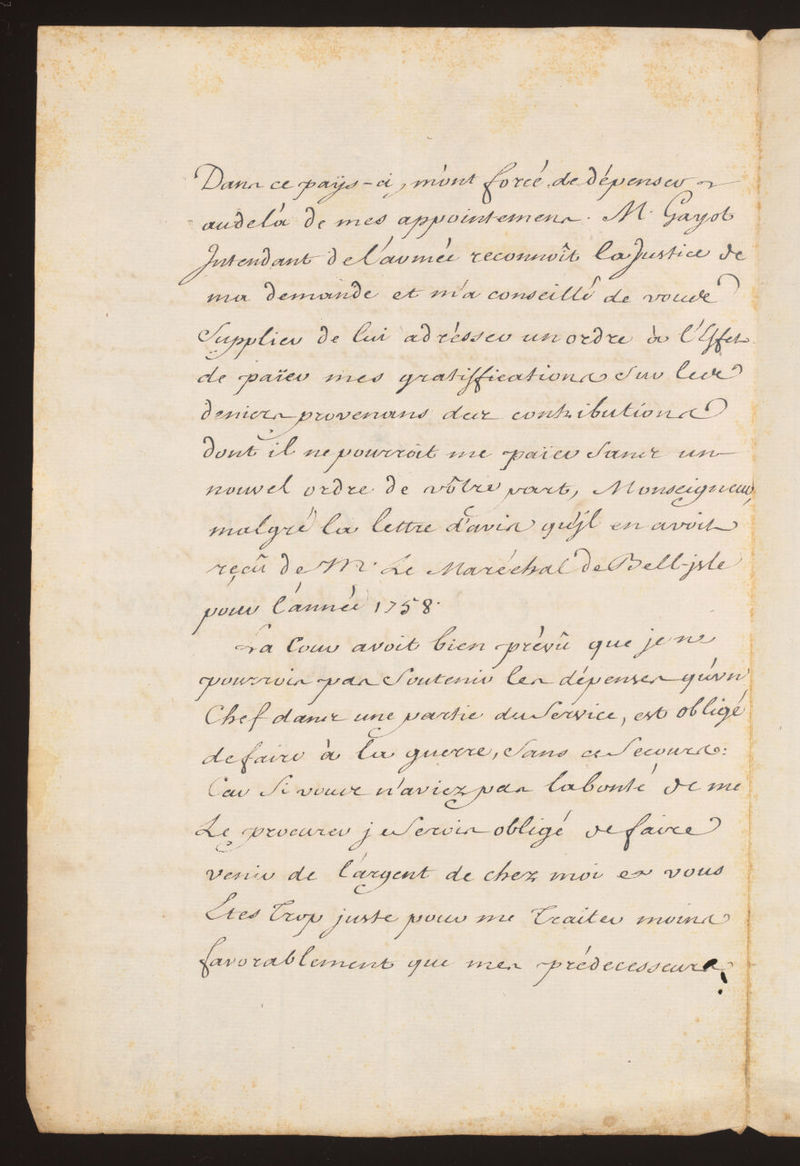 Dans ce païs-ci, m'ont forcé de dépenser
audelà de mes appointemens. M. Gayot
Intendant de l'armée reconnoît la Justice de
ma demande et m'a conseillé de vous
Supplier de lui adrésser un ordre à l'Effet
de païer mes gratiffications Sur les
deniers provenans des contributions
dont il ne pourroit me païer Sans un
nouvel ordre de vôtre part, Monseigneur,
malgré la lettre d'avis qu'jl en avoit
reçû de M. Le Maréchal de Bell-jsle
pour l'année 1758.
La Cour avoit bien prévû que je ne
pourrois pas Soutenir les dépenses qu'un
Chef dans une partie du Service, est obligé
de faire à la guerre, Sans ce Secours:
Car Si vous n'aviez pas la bonté de me
Le procurer je Serois obligé de faire
venir de l'argent de chez moi et vous
Etes Trop juste pour me Traiter moins
favorablement que mes prédecesseurs.